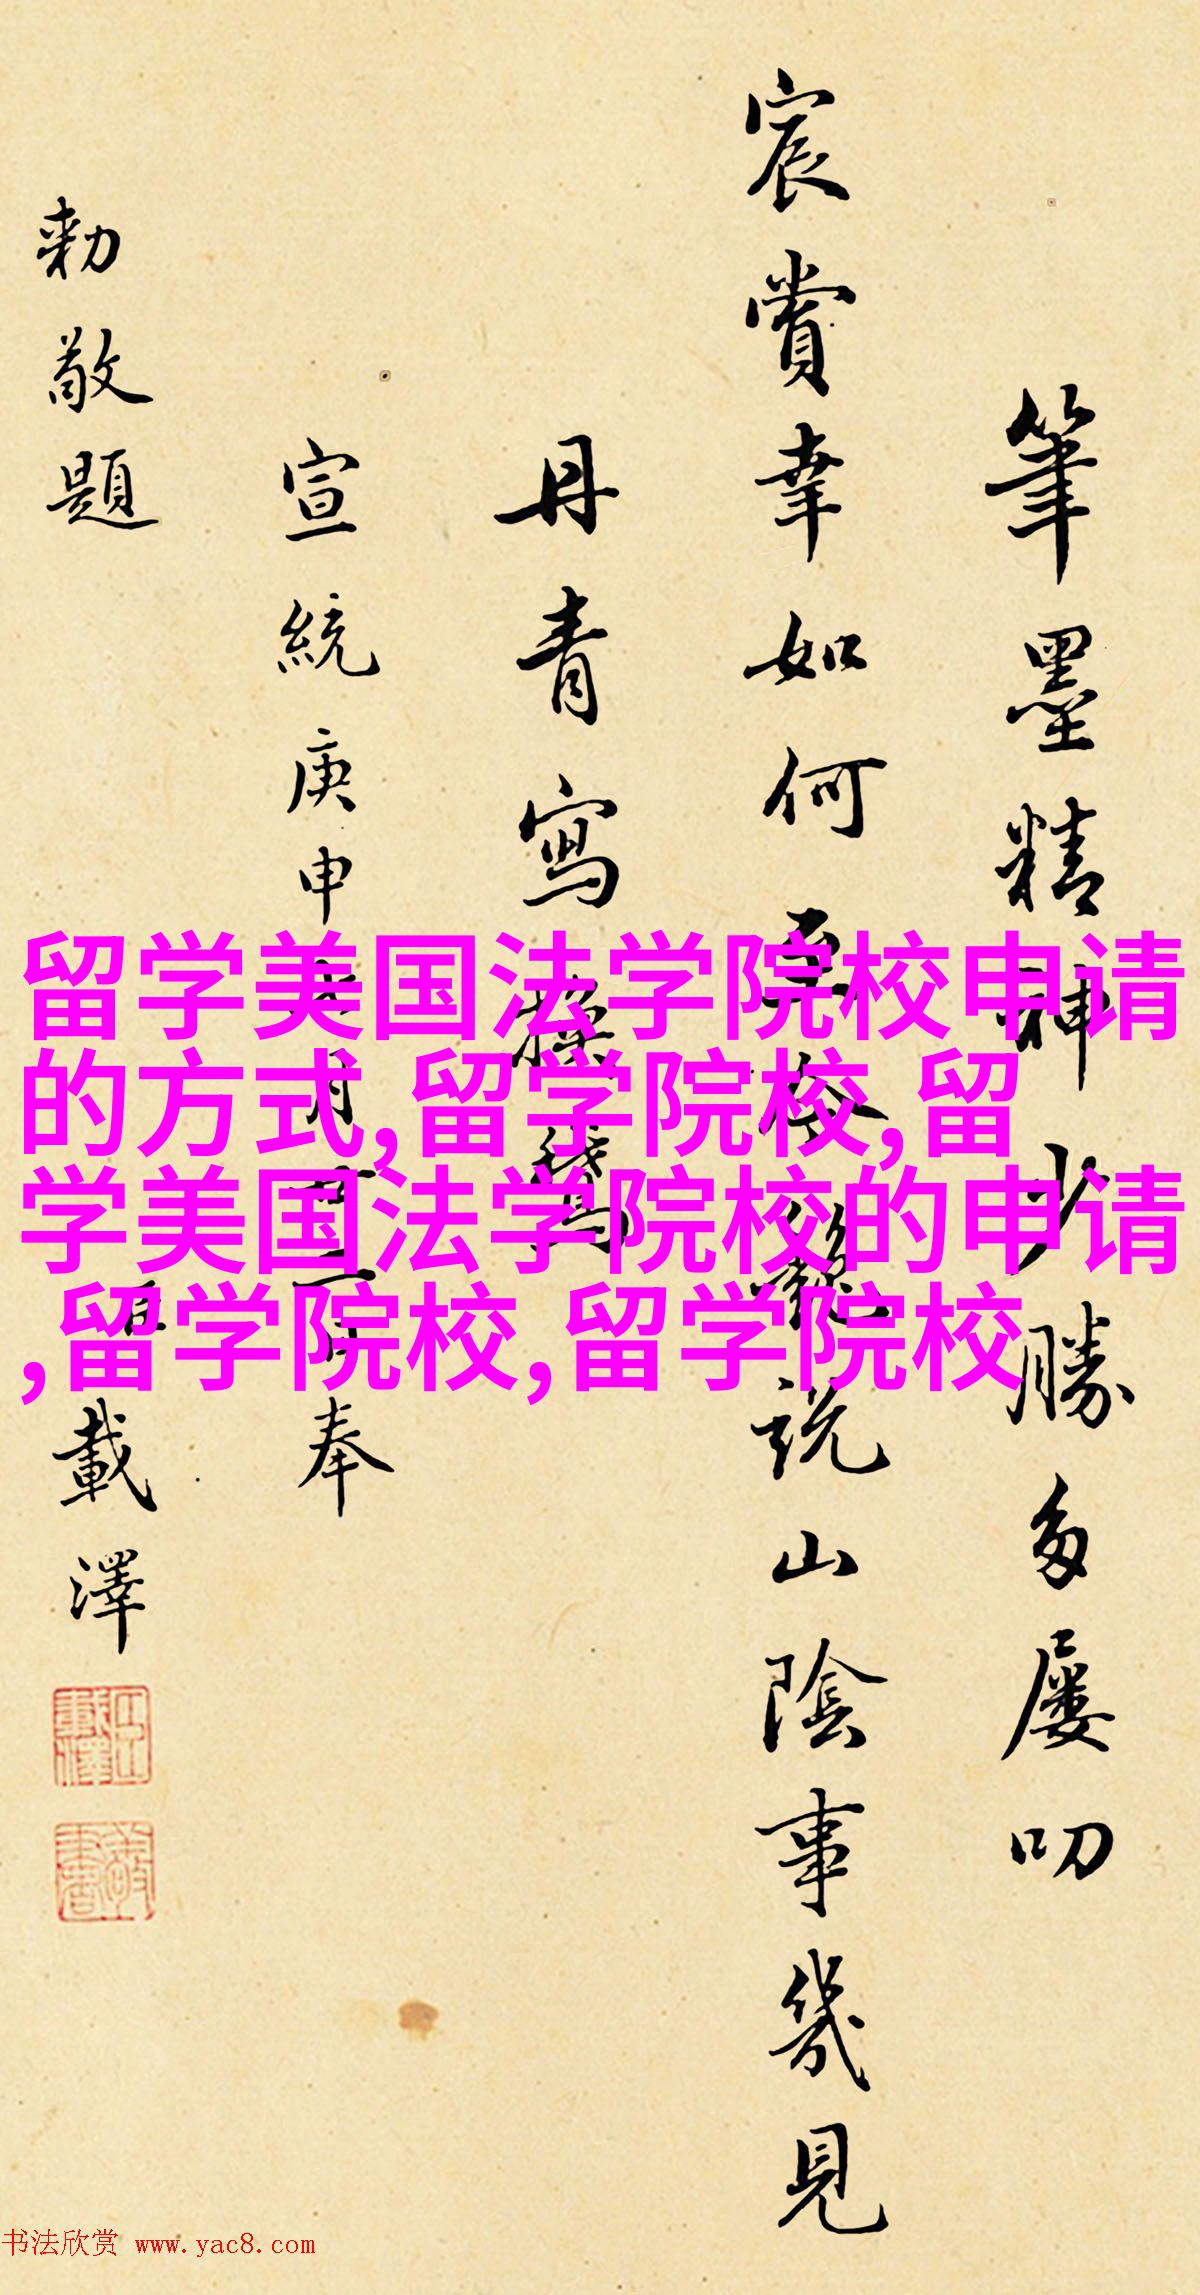 筆墨精神少勝多屢叨
宸賞幸如何 說山陰事幾見
丹青寫
宣統庚申 月 奉
勅敬題 載澤
留学美国法学院校申请
的方式,留学院校,留
学美国法学院校的申请
,留学院校,留学院校
书法欣赏 www.yac8.com